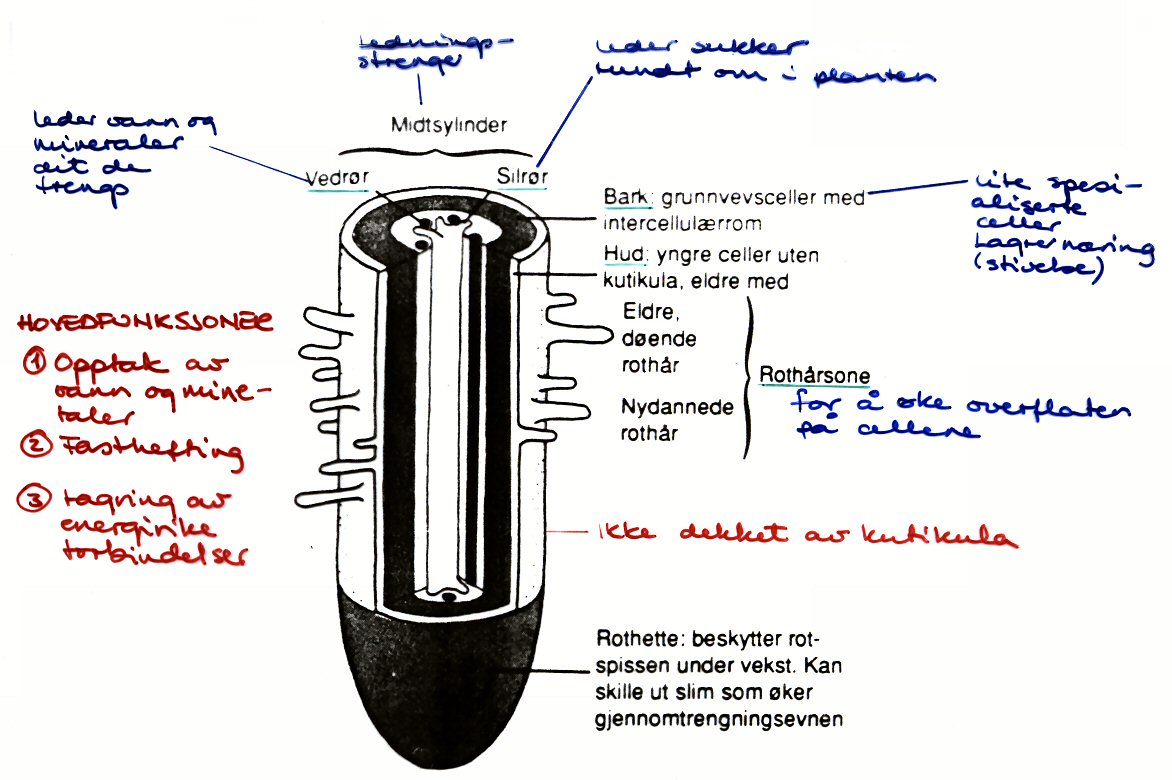 Lednings-
strenger
Leder sukker
rundt om i planten
Leder vann og
mineraler
dit de
trengs
Midtsylinder
Vedrør
Silrør
Bark: grunnvevsceller med
intercellulærrom
Lite spesi-
aliserte
celler
Lagrer næring
(stivelse)
Hud: yngre celler uten
kutikula, eldre med
Eldre,
døende
rothår
Nydannede
rothår
Rothårsone
for å øke overflaten
på cellene
HOVEDFUNKSJONER
① Opptak av
vann og mine-
raler
② Fasthefting
③ Lagring av
energirike
forbindelser
ikke dekket av kutikula
Rothette: beskytter rot-
spissen under vekst. Kan
skille ut slim som øker
gjennomtrengningsevnen